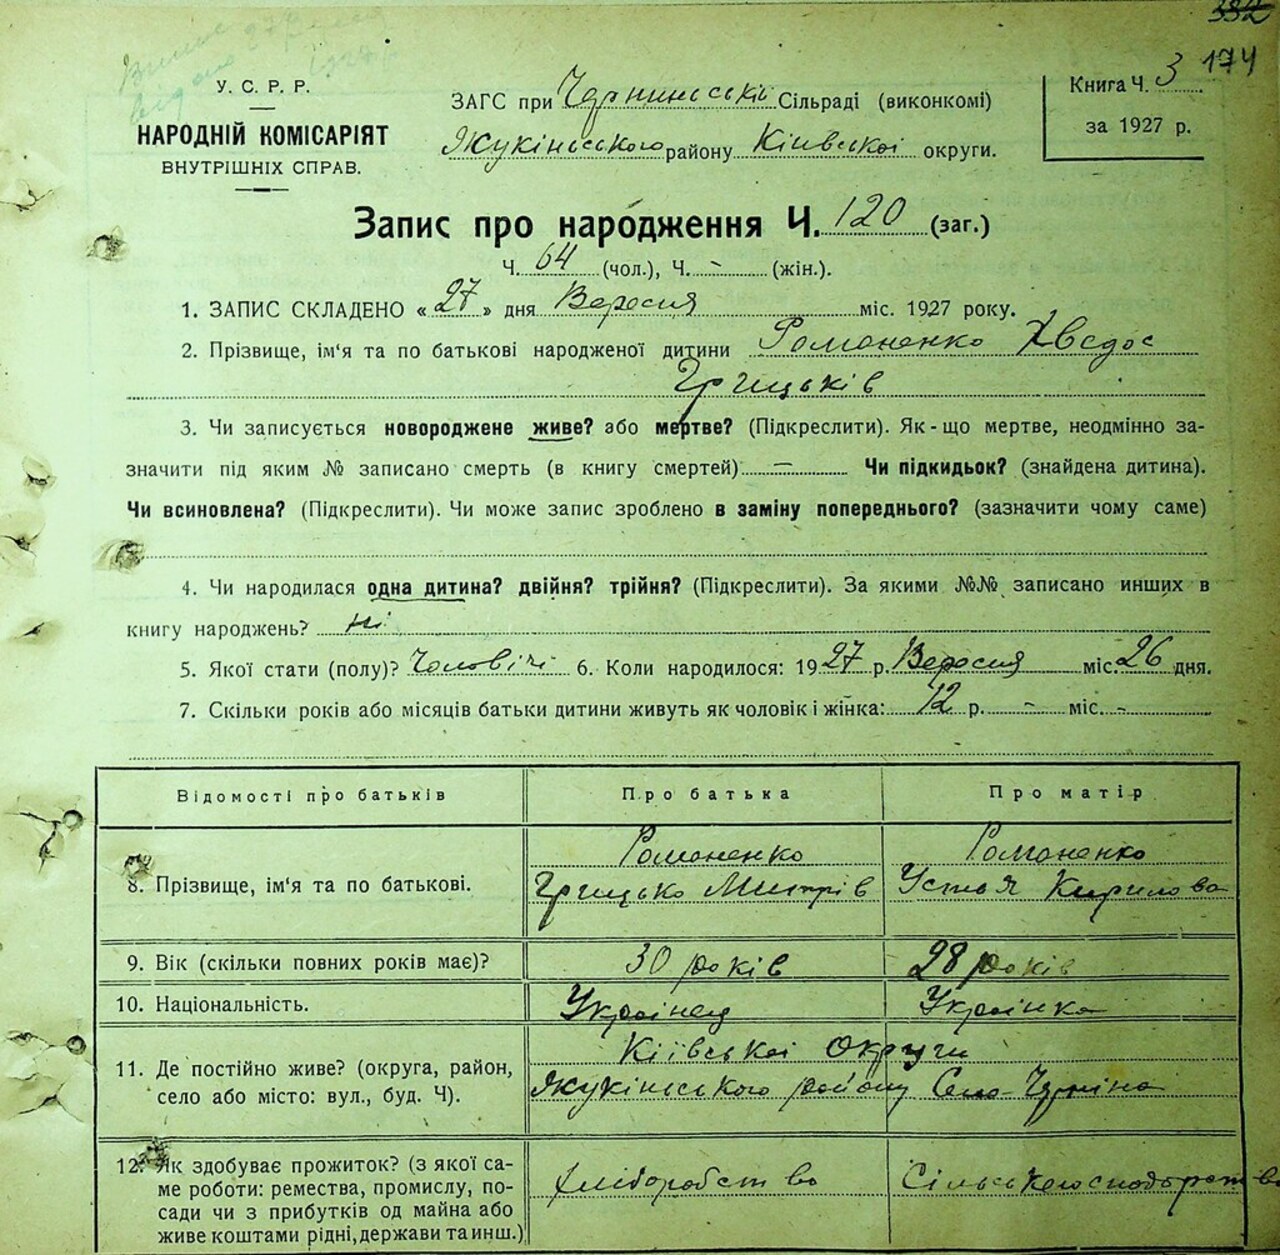 332
174
У. С. Р. Р.
НАРОДНІЙ КОМІСАРІЯТ
ВНУТРІШНІХ СПРАВ.
ЗАГС при Сільраді (виконкомі)
району Київської округи.
Книга Ч. 3
за 1927 р.
Запис про народження Ч. 120 (заг.)
Ч. 64 (чол.), Ч. - (жін.).
1. ЗАПИС СКЛАДЕНО « 27 » дня Вересня міс. 1927 року.
2. Прізвище, ім'я та по батькові народженої дитини Романенко Хведос
Грицьків
3. Чи записується новороджене живе? або мертве? (Підкреслити). Як-що мертве, неодмінно за-
значити під яким № записано смерть (в книгу смертей) — Чи підкидьок? (знайдена дитина).
Чи всиновлена? (Підкреслити). Чи може запис зроблено в заміну попереднього? (зазначити чому саме)
4. Чи народилася одна дитина? двійня? трійня? (Підкреслити). За якими №№ записано инших в
книгу народжень? ні
5. Якої стати (полу)? Чоловічі 6. Коли народилося: 1927 р. Вересня міс. 26 дня.
7. Скільки років або місяців батьки дитини живуть як чоловік і жінка: 12 р. - міс. -
Відомості про батьків
Про батька
Про матір
8. Прізвище, ім'я та по батькові.
Романенко
Грицько Митрів
Романенко
Устья Кирилова
9. Вік (скільки повних років має)?
30 років
28 років
10. Національність.
Українец
Українка
11. Де постійно живе? (округа, район,
село або місто: вул., буд. Ч).
Київської Округи
району Село
12. Як здобуває прожиток? (з якої са-
ме роботи: ремества, промислу, по-
сади чи з прибутків од майна або
живе коштами рідні, держави та инш.)
Хліборобство